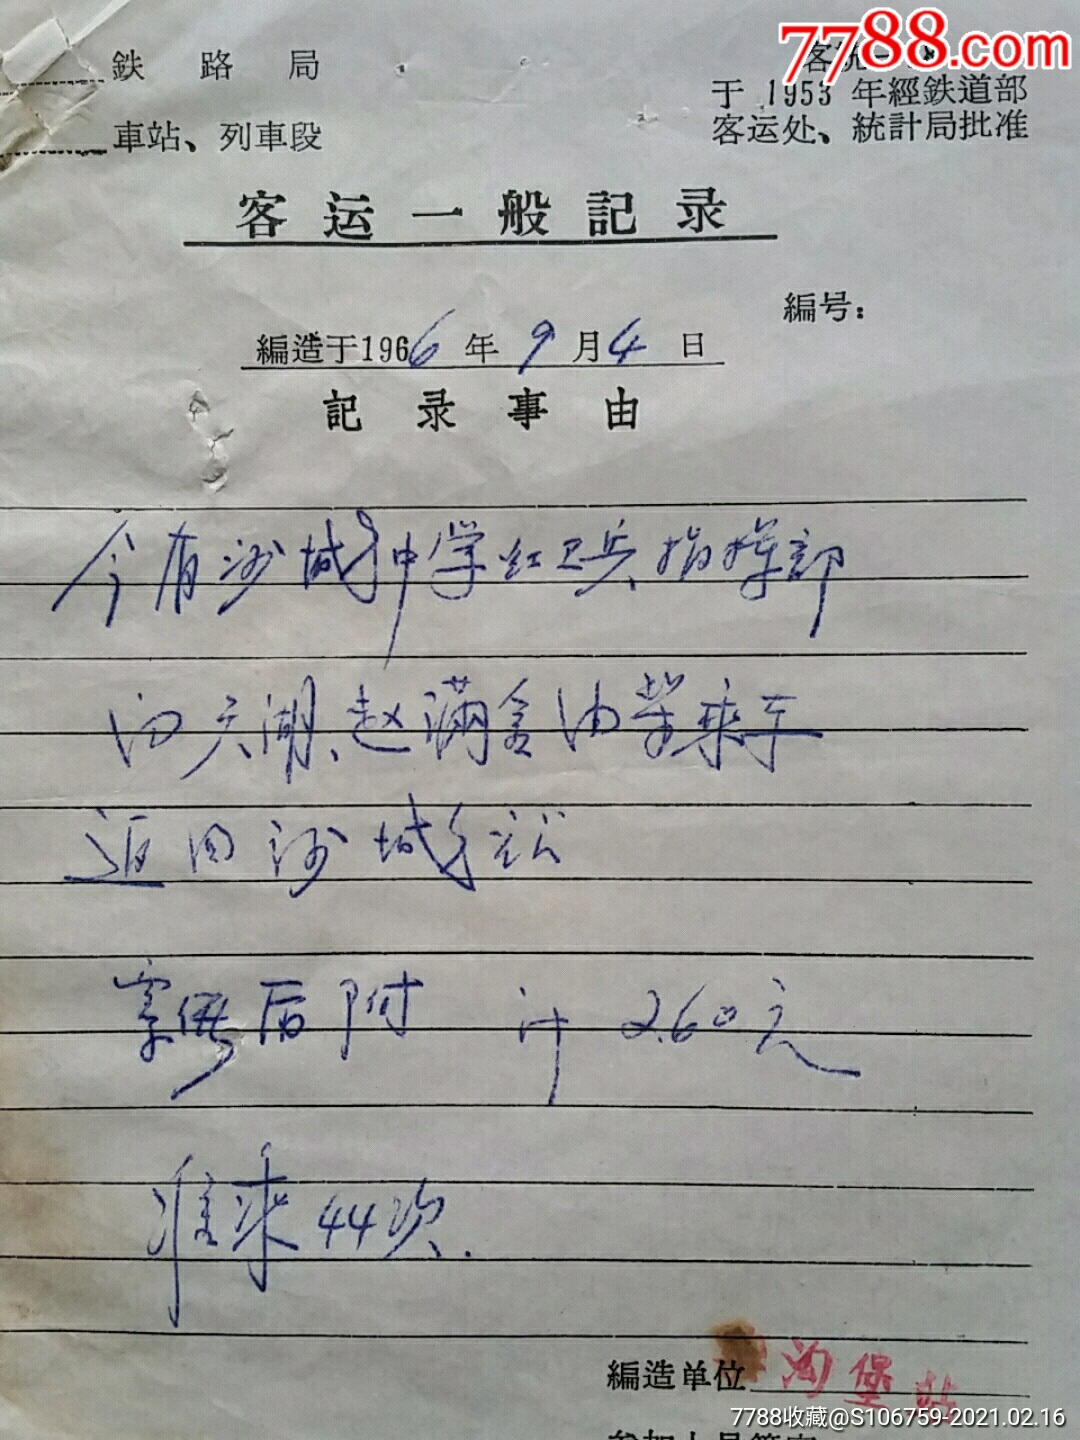 7788.com
鉄 路 局
于 1953 年經鉄道部
車站、列車段
客运处、統計局批准
客运一般記录
編号：
編造于1966年9月4日
記录事由
今有沙城中学红卫兵指挥部
天湖、赵满金油学乘车
返回沙城
后附 计 2.60元
准乘44次.
編造单位 沟堡站
7788收藏@S106759-2021.02.16